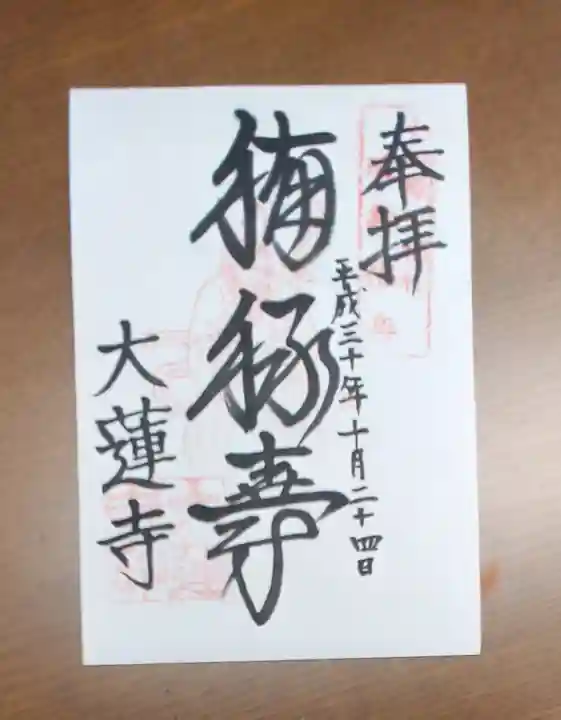 奉拝
平成三十年十月二十四日
福禄壽
大蓮寺